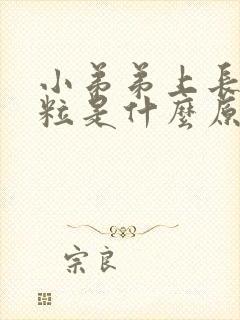 小弟弟上長
粒是什麼原
宗良